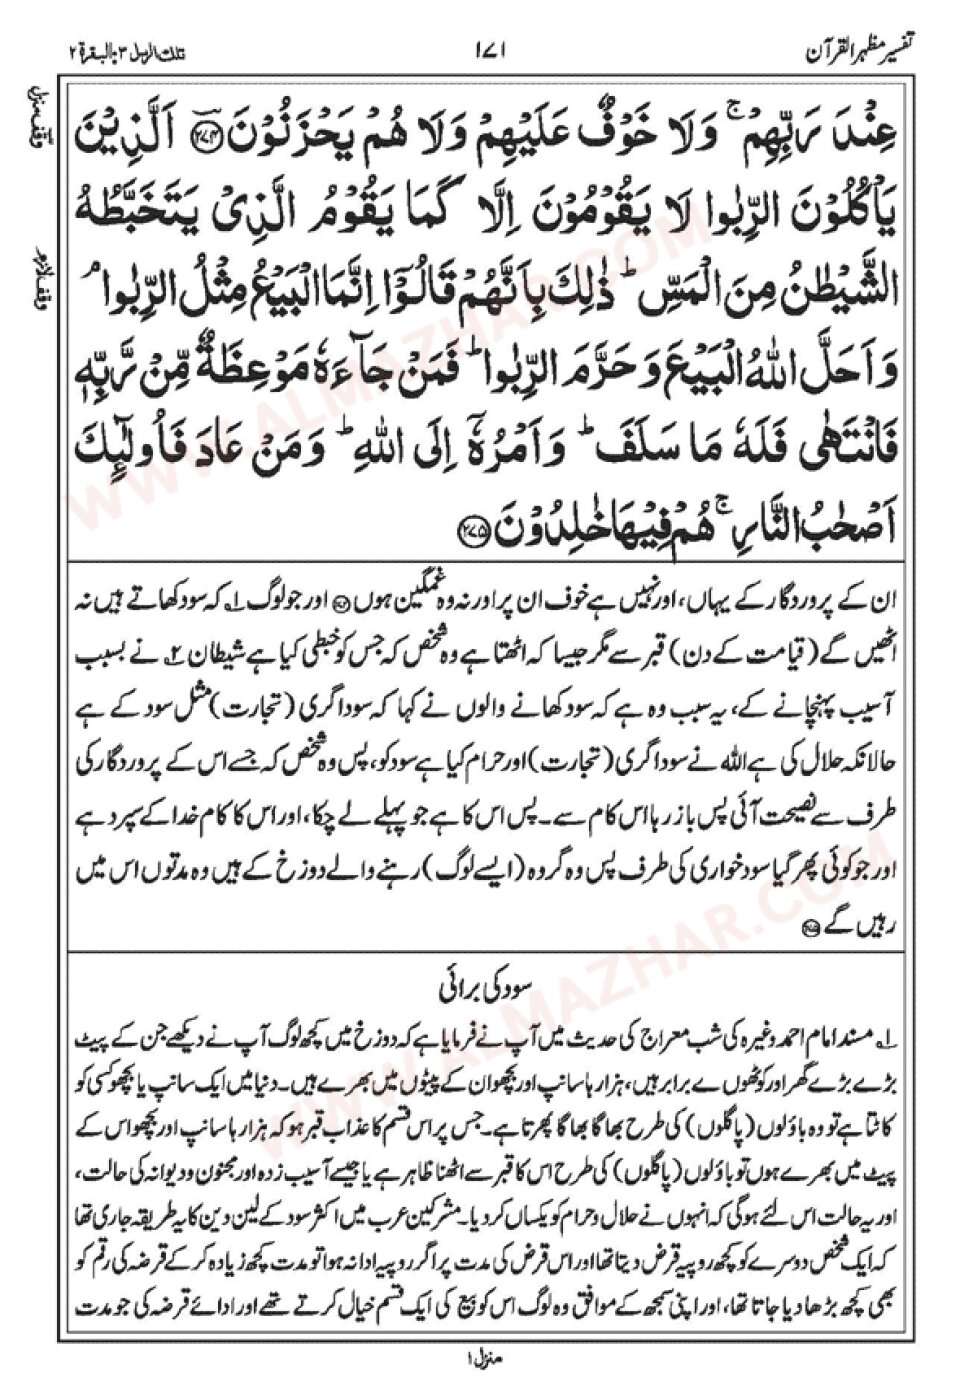 تفسیر مظہر القرآن
۱۷۱
تلک الرسل ۳: البقرۃ ۲
عِنْدَ رَبِّهِمْ ۚ وَلَا خَوْفٌ عَلَيْهِمْ وَلَا هُمْ يَحْزَنُوْنَ ﴿۲۷۴﴾ اَلَّذِيْنَ
يَاْكُلُوْنَ الرِّبٰوا لَا يَقُوْمُوْنَ اِلَّا كَمَا يَقُوْمُ الَّذِيْ يَتَخَبَّطُهُ
الشَّيْطٰنُ مِنَ الْمَسِّ ؕ ذٰلِكَ بِاَنَّهُمْ قَالُوْٓا اِنَّمَا الْبَيْعُ مِثْلُ الرِّبٰوا ۘ
وَاَحَلَّ اللّٰهُ الْبَيْعَ وَحَرَّمَ الرِّبٰوا ؕ فَمَنْ جَآءَهٗ مَوْعِظَةٌ مِّنْ رَّبِّهٖ
فَانْتَهٰى فَلَهٗ مَا سَلَفَ ؕ وَاَمْرُهٗٓ اِلَى اللّٰهِ ؕ وَمَنْ عَادَ فَاُولٰٓئِكَ
اَصْحٰبُ النَّارِ ۚ هُمْ فِيْهَا خٰلِدُوْنَ ﴿۲۷۵﴾
وقف منزل
وقف لازم
ان کے پروردگار کے یہاں، اور نہیں ہے خوف ان پر اور نہ وہ غمگین ہوں ﴿۲۷۴﴾ اور جو لوگ ۱؎ کہ سود کھاتے ہیں نہ
اٹھیں گے (قیامت کے دن) قبر سے مگر جیسا کہ اٹھتا ہے وہ شخص کہ جس کو خبطی کیا ہے شیطان ۲؎ نے بسبب
آسیب پہنچانے کے، یہ سبب وہ ہے کہ سود کھانے والوں نے کہا کہ سوداگری (تجارت) مثل سود کے ہے
حالانکہ حلال کی ہے اللہ نے سوداگری (تجارت) اور حرام کیا ہے سود کو، پس وہ شخص کہ جسے اس کے پروردگار کی
طرف سے نصیحت آئی پس باز رہا اس کام سے۔ پس اس کا ہے جو پہلے لے چکا، اور اس کا کام خدا کے سپرد ہے
اور جو کوئی پھر گیا سود خواری کی طرف پس وہ گروہ (ایسے لوگ) رہنے والے دوزخ کے ہیں وہ مدتوں اس میں
رہیں گے ﴿۲۷۵﴾
سود کی برائی
۱؎ مسند امام احمد وغیرہ کی شب معراج کی حدیث میں آپ نے فرمایا ہے کہ دوزخ میں کچھ لوگ آپ نے دیکھے جن کے پیٹ
بڑے بڑے گھر اور کوٹھوں ے برابر ہیں، ہزار ہا سانپ اور بچھو ان کے پیٹوں میں بھرے ہیں۔ دنیا میں ایک سانپ یا بچھو کسی کو
کاٹتا ہے تو وہ باؤلوں (پاگلوں) کی طرح بھاگا بھاگا پھرتا ہے۔ جس پر اس قسم کا عذاب قبر ہو کہ ہزار ہا سانپ اور بچھو اس کے
پیٹ میں بھرے ہوں تو باؤلوں (پاگلوں) کی طرح اس کا قبر سے اٹھنا ظاہر ہے یا جیسے آسیب زدہ اور مجنون و دیوانہ کی حالت،
اور یہ حالت اس لئے ہوگی کہ انہوں نے حلال و حرام کو یکساں کر دیا۔ مشرکین عرب میں اکثر سود کے لین دین کا یہ طریقہ جاری تھا
کہ ایک شخص دوسرے کو کچھ روپیہ قرض دیتا تھا اور اس قرض کی مدت پر اگر روپیہ ادا نہ ہوا تو مدت کچھ زیادہ کر کے قرضہ کی رقم کو
بھی کچھ بڑھا دیا جاتا تھا، اور اپنی سمجھ کے موافق وہ لوگ اس کو بیع کی ایک قسم خیال کرتے تھے اور ادائے قرضہ کی جو مدت
منزل ۱
WWW.ALMAZHAR.COM
WWW.ALMAZHAR.COM